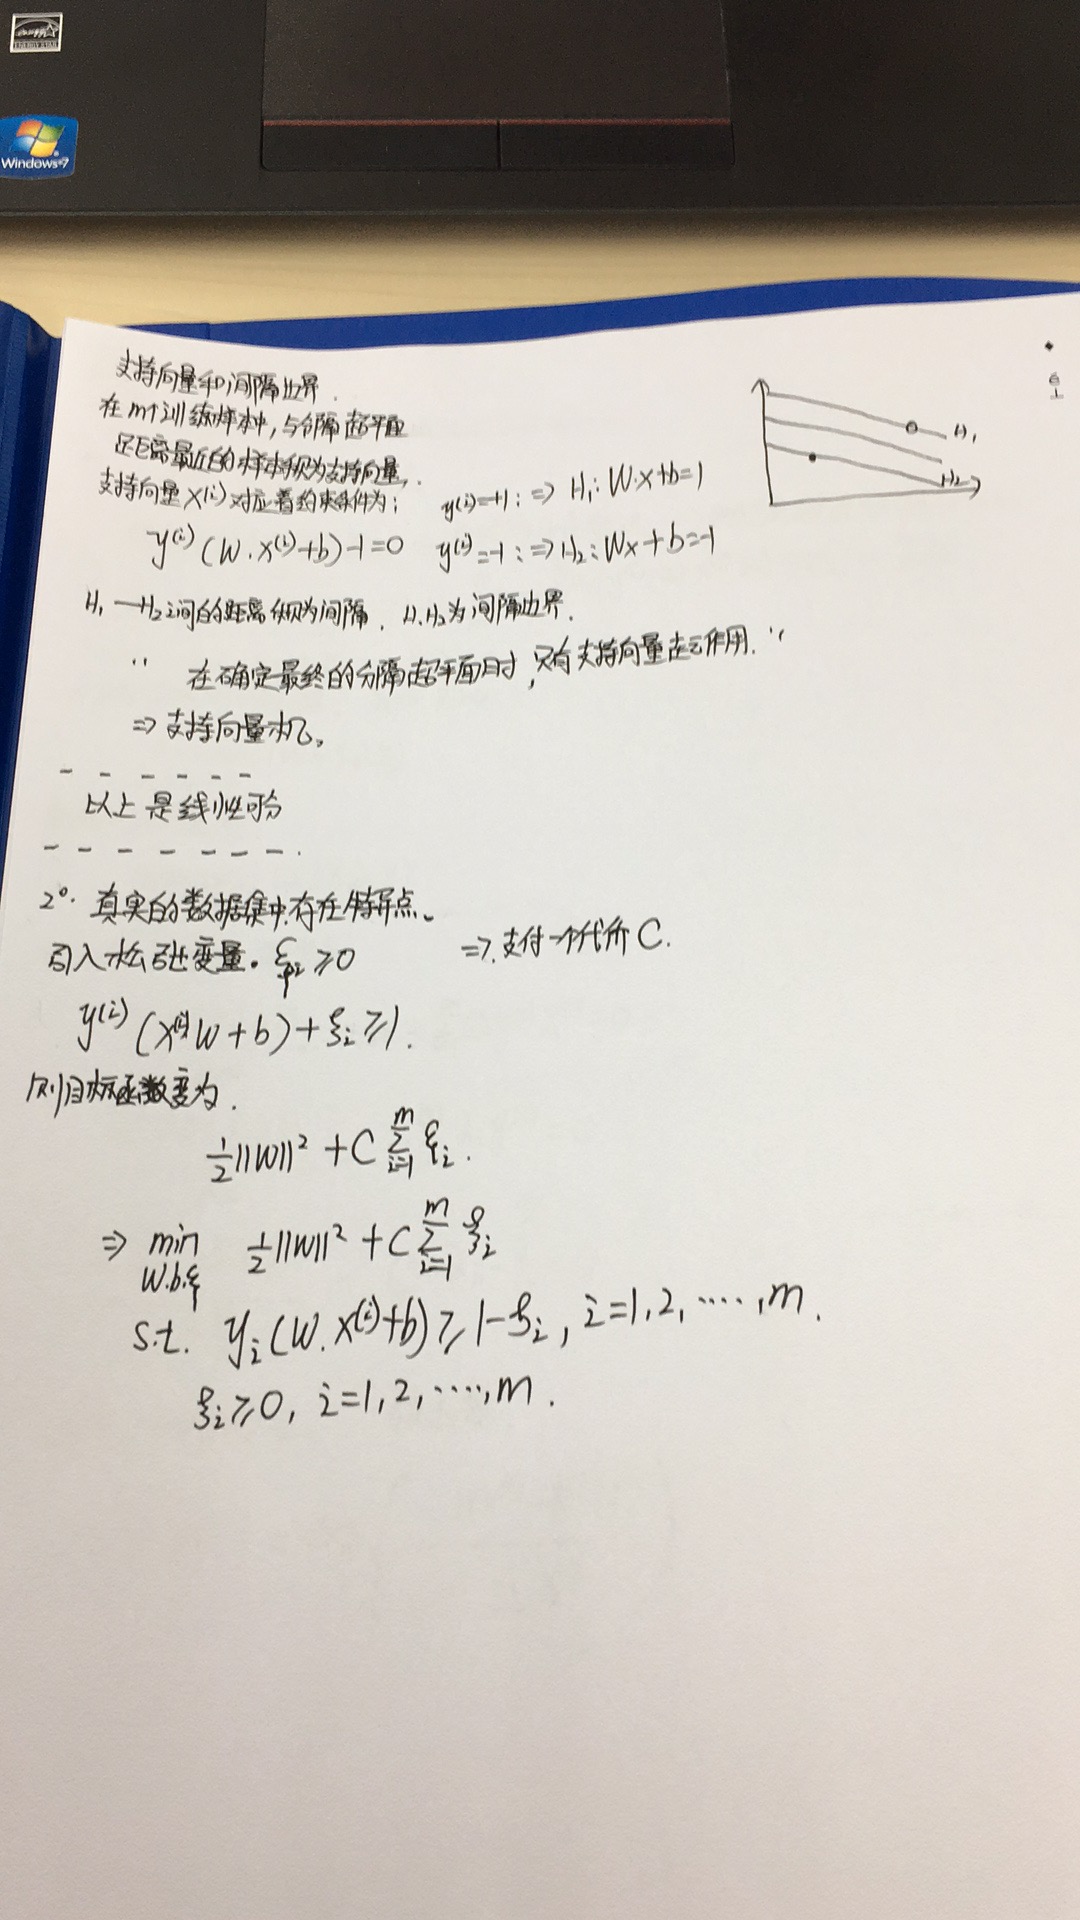 ENERGY STAR
Windows 7
支持向量和间隔边界.
在m个训练样本中,与分隔超平面
距离最近的样本称为支持向量,
支持向量X⁽ⁱ⁾对应着约束条件为:
y⁽ⁱ⁾(W·X⁽ⁱ⁾+b)-1=0
y(i)=+1: => H₁: W·x+b=1
y⁽ⁱ⁾=-1: => H₂: Wx+b=-1
H₁
H₂
H₁—H₂之间的距离称为间隔. H₁H₂为间隔边界.
" 在确定最终的分隔超平面时,只有支持向量起作用."
=> 支持向量机,
以上是线性可分
2°. 真实的数据集中存在特异点.
引入松弛变量. ξi ≥0 => 支付一个代价 C.
y⁽ⁱ⁾(X⁽ⁱ⁾W+b)+ξi ≥1.
则目标函数变为.
½||W||² + C Σ_{i=1}^{m} ξi.
=> min_{W.b.ξ} ½||W||² + C Σ_{i=1}^{m} ξi
s.t. yi(W.X⁽ⁱ⁾+b) ≥ 1-ξi, i=1,2,····,m.
ξi ≥0, i=1,2,····,m.